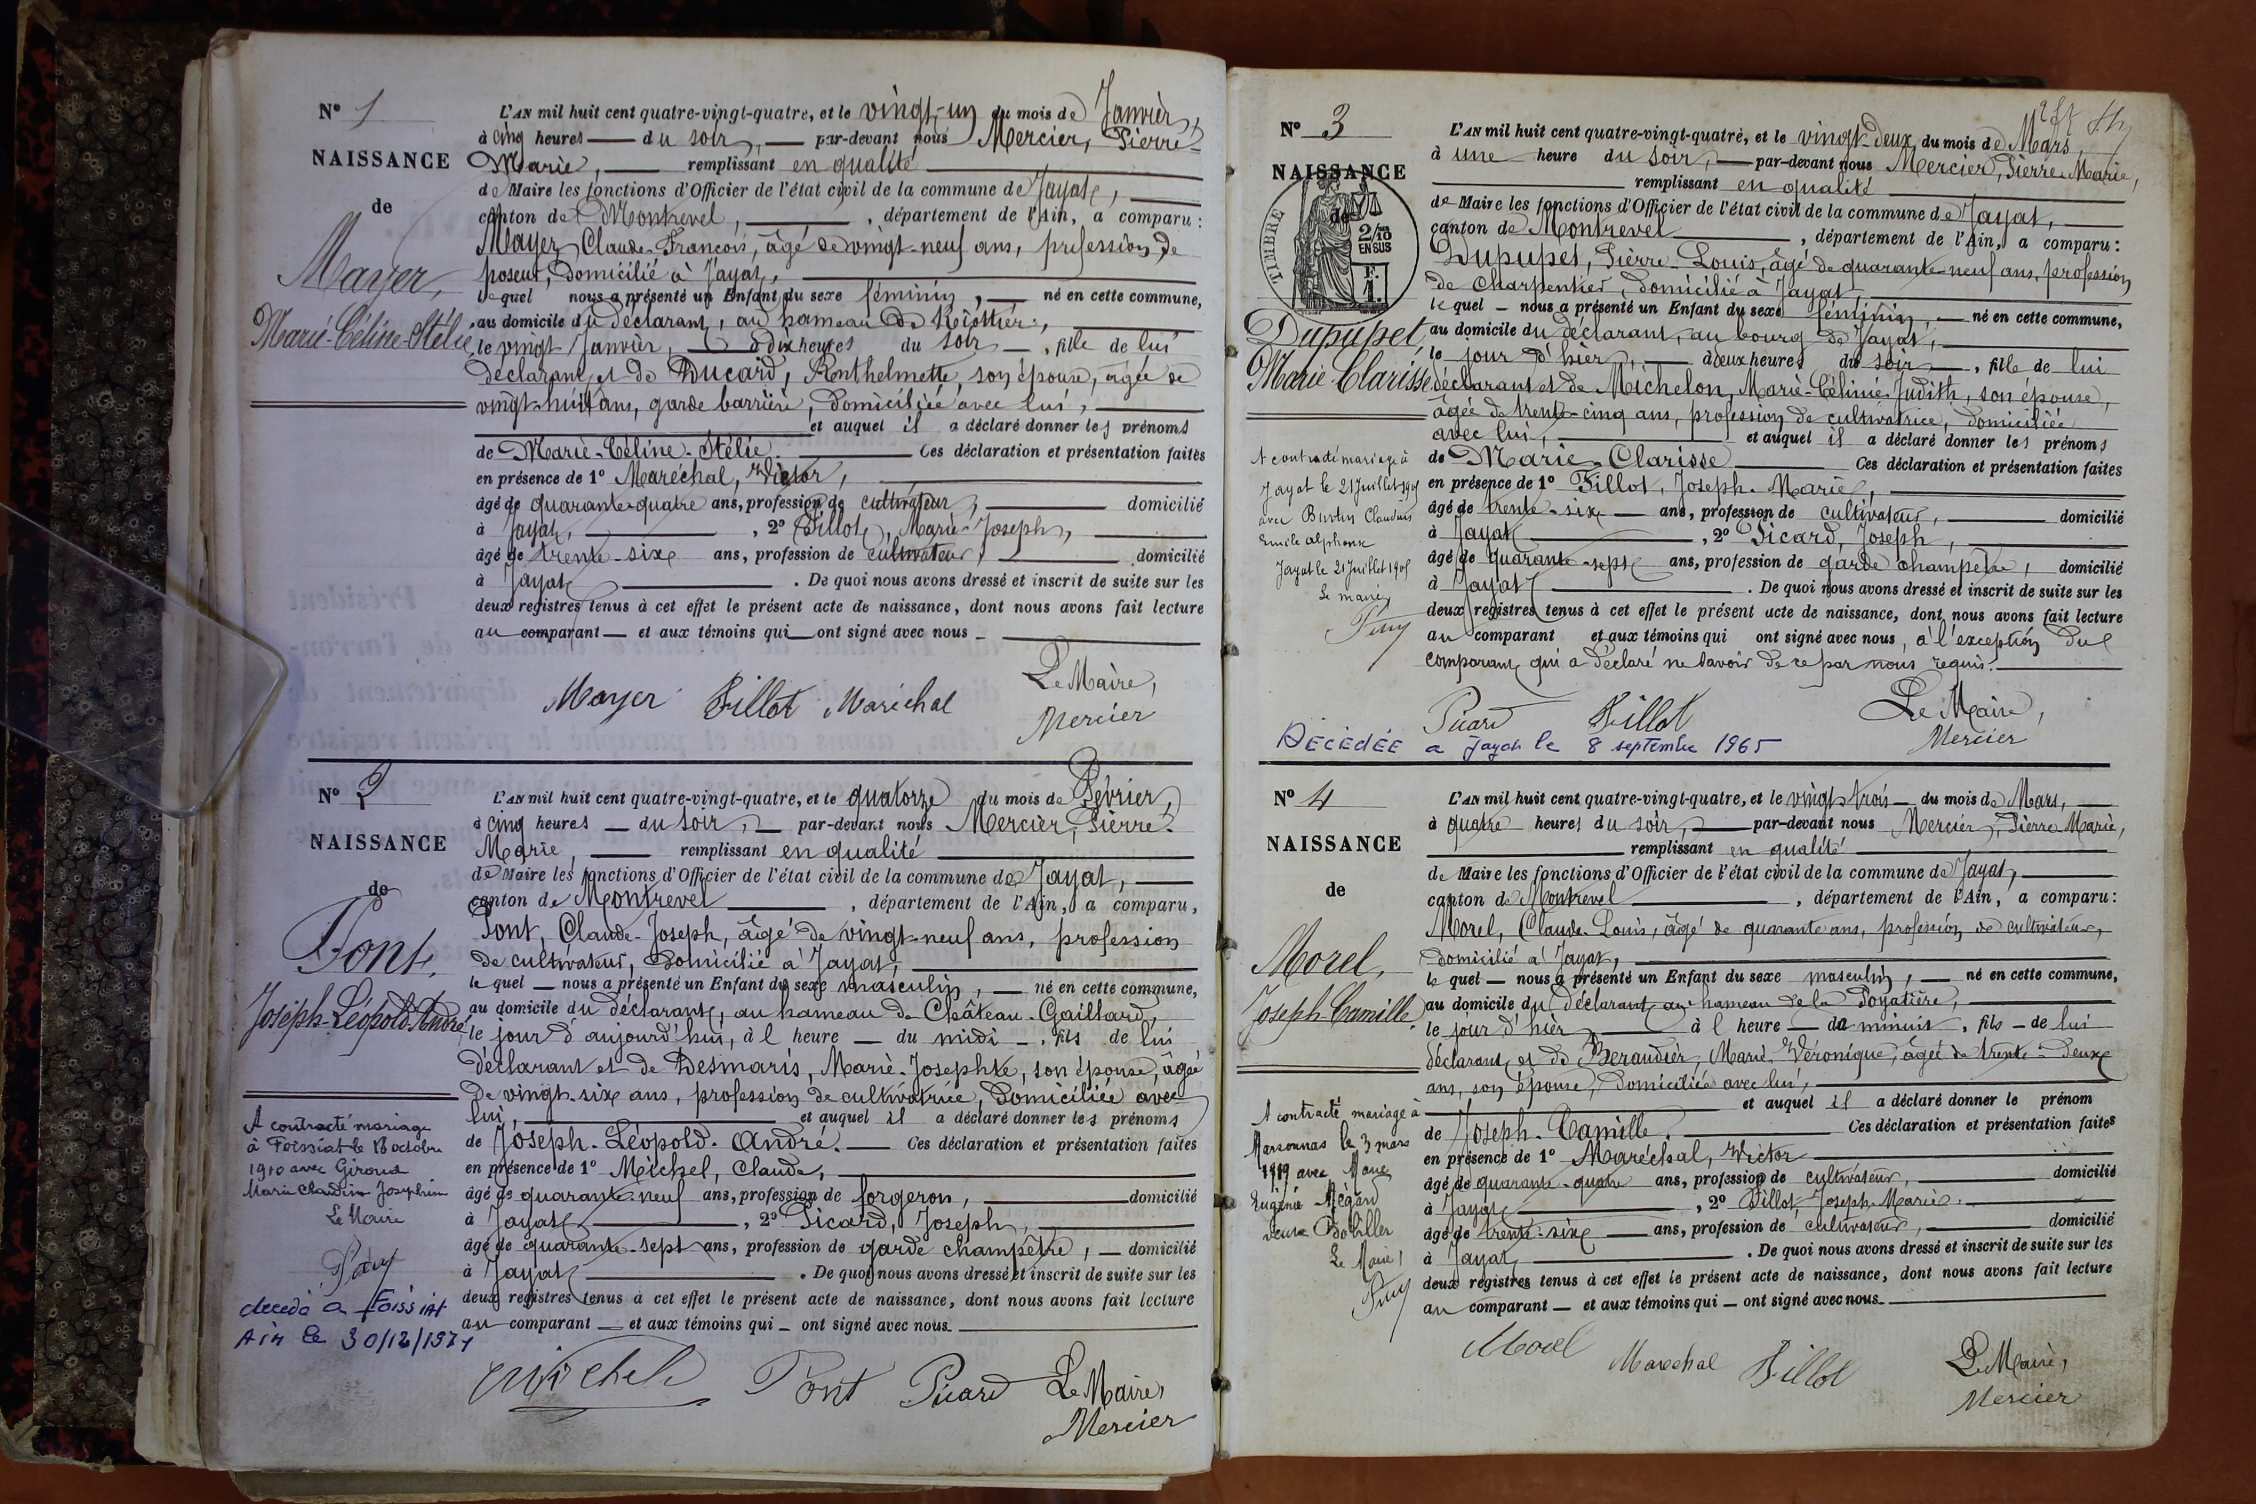 N° 1
NAISSANCE
de
Mayer,
Marie-Céline-Stélie
L'AN mil huit cent quatre-vingt-quatre, et le vingt-un du mois de Janvier,
à cinq heures — du soir, — par-devant nous Mercier, Pierre-
Marie, — remplissant en qualité
de Maire les fonctions d'Officier de l'état civil de la commune de Jayat,
canton de Montrevel, — , département de l'Ain, a comparu :
Mayer, Claude-François, âgé de vingt-neuf ans, profession de
poseur, domicilié à Jayat,
lequel nous a présenté un Enfant du sexe féminin, — né en cette commune,
au domicile du déclarant, au hameau de
le vingt Janvier, — à dix heures du soir — , fille de lui
déclarant et de Ducard, Anthelmette, son épouse, âgée de
vingt-huit ans, garde barrière, domiciliée avec lui,
et auquel il a déclaré donner les prénoms
de Marie-Céline-Stélie. — Ces déclaration et présentation faites
en présence de 1° Maréchal, Victor,
âgé de quarante-quatre ans, profession de cultivateur, — domicilié
à Jayat, — , 2° Fillot, Marie-Joseph,
âgé de trente-six ans, profession de cultivateur, — domicilié
à Jayat — . De quoi nous avons dressé et inscrit de suite sur les
deux registres tenus à cet effet le présent acte de naissance, dont nous avons fait lecture
au comparant — et aux témoins qui — ont signé avec nous —
Mayer Fillot Maréchal Le Maire,
Mercier
N° 2
NAISSANCE
de
Pont,
Joseph-Léopold-André
A contracté mariage
à Foissiat le 18 octobre
1910 avec Giroud
Marie Claudine Joséphine
Le Maire
décédé à Foissiat
Ain le 30/12/1971
L'AN mil huit cent quatre-vingt-quatre, et le quatorze du mois de Février,
à cinq heures — du soir, — par-devant nous Mercier, Pierre-
Marie, — remplissant en qualité
de Maire les fonctions d'Officier de l'état civil de la commune de Jayat,
canton de Montrevel — , département de l'Ain, a comparu,
Pont, Claude-Joseph, âgé de vingt-neuf ans, profession
de cultivateur, domicilié à Jayat,
lequel — nous a présenté un Enfant du sexe masculin, — né en cette commune,
au domicile du déclarant, au hameau de Château-Gaillard,
le jour d'aujourd'hui, à l heure — du midi — , fils de lui
déclarant et de Desmaris, Marie-Josephte, son épouse, âgée
de vingt-six ans, profession de cultivatrice, domiciliée avec
lui, — et auquel il a déclaré donner les prénoms
de Joseph-Léopold-André. — Ces déclaration et présentation faites
en présence de 1° Michel, Claude,
âgé de quarante-neuf ans, profession de forgeron, — domicilié
à Jayat — , 2° Picard, Joseph,
âgé de quarante-sept ans, profession de garde champêtre, — domicilié
à Jayat — . De quoi nous avons dressé et inscrit de suite sur les
deux registres tenus à cet effet le présent acte de naissance, dont nous avons fait lecture
au comparant — et aux témoins qui — ont signé avec nous.
Michel Pont Picard Le Maire,
Mercier
N° 3
NAISSANCE
de
TIMBRE
2/10
EN SUS
F.
1.
Dupupet,
Marie Clarisse
A contracté mariage à
Jayat le 21 Juillet 1905
avec Burtin Claudius
Emile Alphonse
Jayat le 21 Juillet 1905
Le maire
L'AN mil huit cent quatre-vingt-quatre, et le vingt-deux du mois de Mars,
à une heure du soir, — par-devant nous Mercier, Pierre-Marie,
remplissant en qualité
de Maire les fonctions d'Officier de l'état civil de la commune de Jayat,
canton de Montrevel — , département de l'Ain, a comparu :
Dupupet, Pierre-Louis, âgé de quarante-neuf ans, profession
de charpentier, domicilié à Jayat,
lequel — nous a présenté un Enfant du sexe féminin, — né en cette commune,
au domicile du déclarant, au bourg de Jayat,
le jour d'hier, — à deux heures du soir — , fille de lui
déclarant et de Michelon, Marie-Célinie-Judith, son épouse,
âgée de trente-cinq ans, profession de cultivatrice, domiciliée
avec lui, — et auquel il a déclaré donner les prénoms
de Marie-Clarisse — Ces déclaration et présentation faites
en présence de 1° Fillot, Joseph-Marie,
âgé de trente-six — ans, profession de cultivateur, — domicilié
à Jayat — , 2° Picard, Joseph,
âgé de quarante-sept ans, profession de garde champêtre, domicilié
à Jayat — . De quoi nous avons dressé et inscrit de suite sur les
deux registres tenus à cet effet le présent acte de naissance, dont nous avons fait lecture
au comparant et aux témoins qui ont signé avec nous, à l'exception du
comparant qui a déclaré ne savoir de ce par nous requis.
Picard Fillot Le Maire,
Mercier
DÉCÉDÉE à Jayat le 8 septembre 1965
N° 4
NAISSANCE
de
Morel,
Joseph-Camille.
A contracté mariage à
Marsonnas le 3 mars
1919 avec Marie
Eugénie Mégard
veuve Bobiller
Le Maire,
L'AN mil huit cent quatre-vingt-quatre, et le vingt-trois — du mois de Mars,
à quatre heures du soir, — par-devant nous Mercier, Pierre Marie,
remplissant en qualité
de Maire les fonctions d'Officier de l'état civil de la commune de Jayat,
canton de Montrevel — , département de l'Ain, a comparu :
Morel, Claude-Louis, âgé de quarante ans, profession de cultivateur,
domicilié à Jayat,
lequel — nous a présenté un Enfant du sexe masculin, — né en cette commune,
au domicile du déclarant au hameau de la Poyatière,
le jour d'hier — à l heure — de minuit , fils — de lui
déclarant et de Beraudier, Marie-Véronique, âgée de trente-deux
ans, son épouse, domiciliée avec lui,
et auquel il a déclaré donner le prénom
de Joseph-Camille. — Ces déclaration et présentation faites
en présence de 1° Maréchal, Victor
âgé de quarante-quatre ans, profession de cultivateur, — domicilié
à Jayat — , 2° Fillot, Joseph-Marie,
âgé de trente-six — ans, profession de cultivateur, — domicilié
à Jayat — . De quoi nous avons dressé et inscrit de suite sur les
deux registres tenus à cet effet le présent acte de naissance, dont nous avons fait lecture
au comparant — et aux témoins qui — ont signé avec nous.
Morel Maréchal Fillot Le Maire,
Mercier